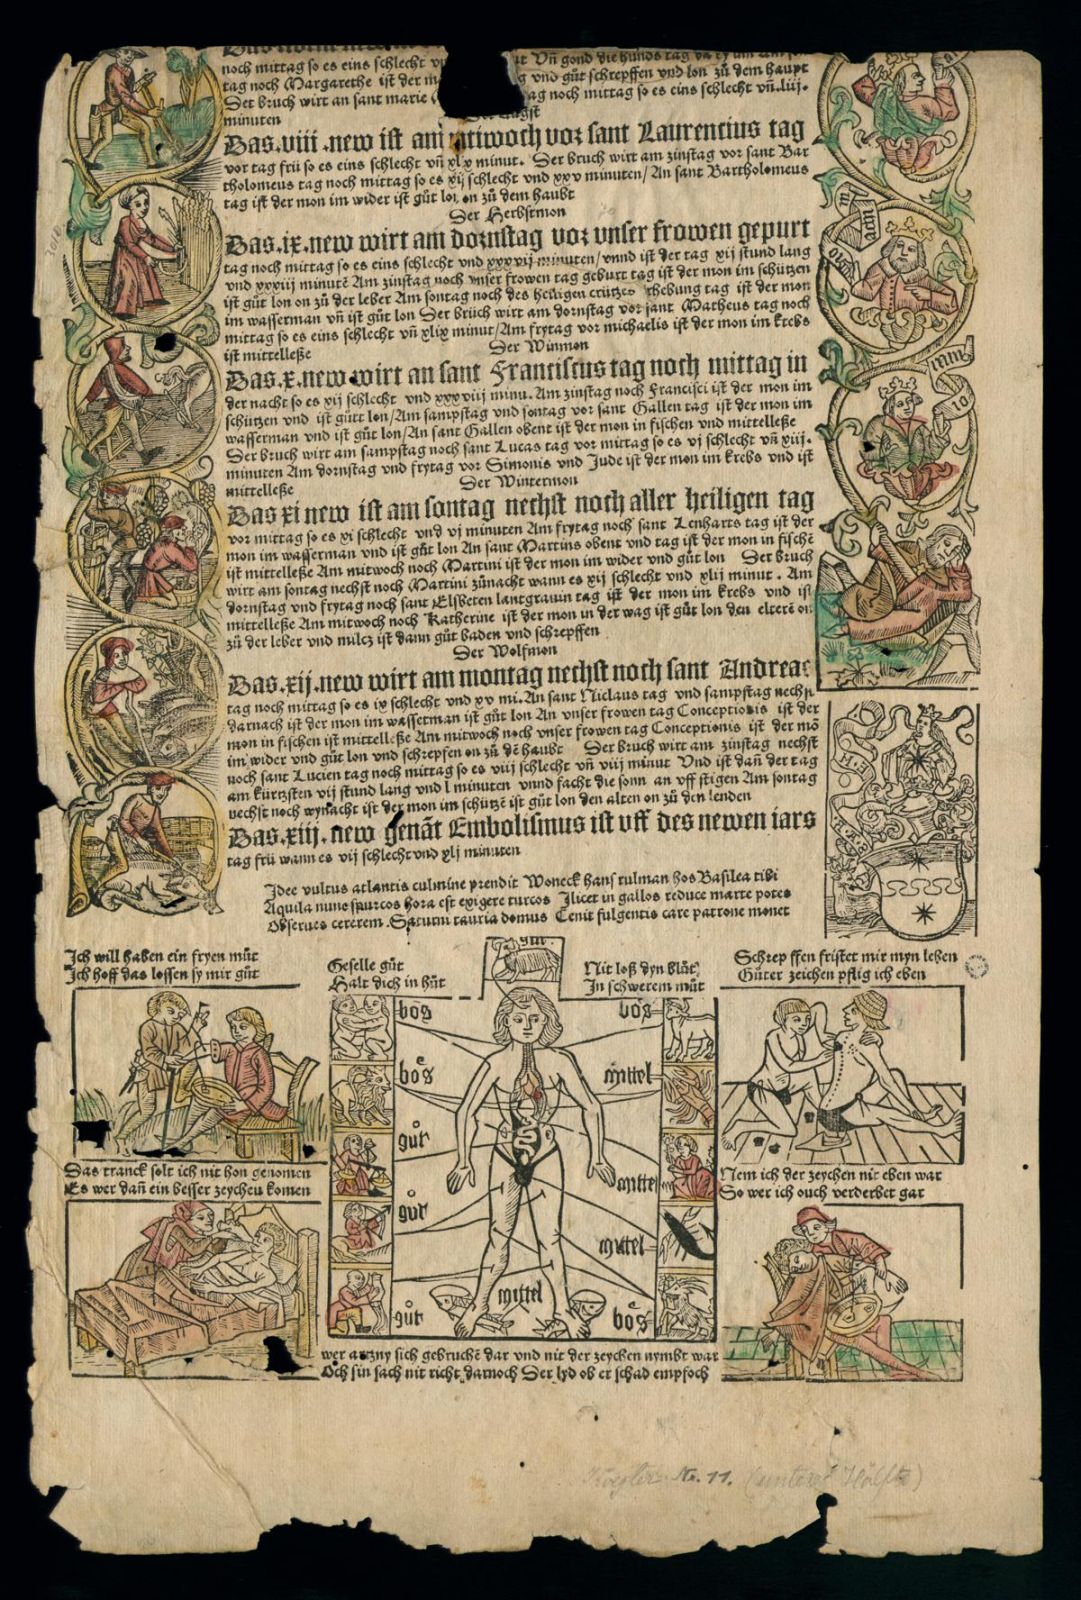 noch mittag so es eins schlecht
Vñ gond die hunds tag
tag noch Margarethe ist der
vnd gůt schrepffen vnd lon zů dem haupt
Der bruch wirt an sant marie
tag noch mittag so es eins schlecht vñ .liij.
minuten
Das .viii .new ist am mitwoch vor sant Laurentius tag
vor tag frü so es eins schlecht vñ xlix minut. Der bruch wirt am zinstag vor sant Bar
tholomeus tag noch mittag so es xij schlecht vnd xxv minuten/ An sant Bartholomeus
tag ist der mon im wider ist gůt lon on zů dem haubt
Der Herbstmon
Das .ix. new wirt am dornstag vor vnser frowen gepurt
tag noch mittag so es eins schlecht vnd xxxvij minuten/ vnnd ist der tag xij stund lang
vnd xxxiij minutē Am zinstag noch vnser frowen tag geburt tag ist der mon im schützen
ist gůt lon on zů der leber Am sontag noch des heiligen crützes erhebung tag ist der mon
im wasserman vñ ist gůt lon Der brüch wirt am dornstag vor sant Matheus tag noch
mittag so es eins schlecht vñ xlix minut/ Am frytag vor michaelis ist der mon im krebs
ist mittelleße
Der Winmon
Das .x. new wirt an sant Franciscus tag noch mittag in
der nacht so es xij schlecht vnd xxxviij minu. Am zinstag noch Francisci ist der mon im
schützen vnd ist gůtt lon/ Am sampstag vnd sontag vor sant Gallen tag ist der mon im
wasserman vnd ist gůt lon/ An sant Gallen obent ist der mon in fischen vnd mittelleße
Der bruch wirt am sampstag noch sant Lucas tag vor mittag so es vj schlecht vñ xiij.
minuten Am dornstag vnd frytag vor Simonis vnd Jude ist der mon im krebs vnd ist
mittelleße
Der Wintermon
Das xi new ist am sontag nechst noch aller heiligen tag
vor mittag so es xi schlecht vnd vj minuten Am frytag noch sant Lenharts tag ist der
mon im wasserman vnd ist gůt lon An sant Martins obent vnd tag ist der mon in fischē
ist mittelleße Am mitwoch noch Martini ist der mon im wider vnd gůt lon Der bruch
wirt am sontag nechst noch Martini zůnacht wann es xij schlecht vnd xlij minut . Am
dornstag vnd frytag noch sant Elsbeten lantgrauin tag ist der mon im krebs vnd ist
mittelleße Am mitwoch noch Katherine ist der mon in der wag ist gůt lon den elterē on
zů der leber vnd milcz ist dann gůt baden vnd schrepffen
Der Wolfmon
Das .xij. new wirt am montag nechst noch sant Andreas
tag noch mittag so es ix schlecht vnd xv mi. An sant Niclaus tag vnd sampstag nechst
darnach ist der mon im wasserman ist gůt lon An vnser frowen tag Conceptionis ist der
mon in fischen ist mittelleße Am mitwoch noch vnser frowen tag Conceptionis ist der mō
im wider vnd gůt lon vnd schrepfen on zů dē haubt Der bruch wirt am zinstag nechst
noch sant Lucien tag noch mittag so es viij schlecht vñ viij minut Vnd ist dañ der tag
am kürtzsten vij stund lang vnd l minuten vnnd facht die sonn an vff stigen Am sontag
nechst noch wynacht ist der mon im schützē ist gůt lon den alten on zů den lenden
Das .xiij. new genāt Embolismus ist vff des newen iars
tag frü wann es vij schlecht vnd xlj minuten
Idee vultus atlantis culmine prendit Woneck hans rulman hos Basilea tibi
Aquila nunc spurcos hora est exigere turcos Ilicet in gallos reduce marte potes
Observes ceterem. Saturni tauria domus Cenit fulgentis care patrone monet
Ich will haben ein fryen můt
Ich hoff das lossen sy mir gůt
Geselle gůt
Halt dich in hůt
gůt
Nit loß dyn blůt
In schwerem můt
Schrepffen fristet mir myn leben
Güter zeichen pflig ich eben
bös
bös
bös
mittel
gůt
mittel
gůt
mittel
gůt
mittel
bös
Das tranck solt ich nit hon genomen
Es wer dañ ein besser zeychen komen
Nem ich der zeychen nit eben war
So wer ich ouch verderbet gar
wer artzny sich gebruchē dar vnd nit der zeychen nymbt war
Och sin sach nit richt darnoch Der lyd ob er schad empfoch
Koegler Nr. 11. (untere Hälfte)